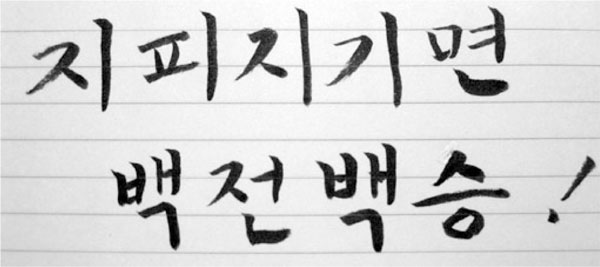 지피지기면
백전백승!